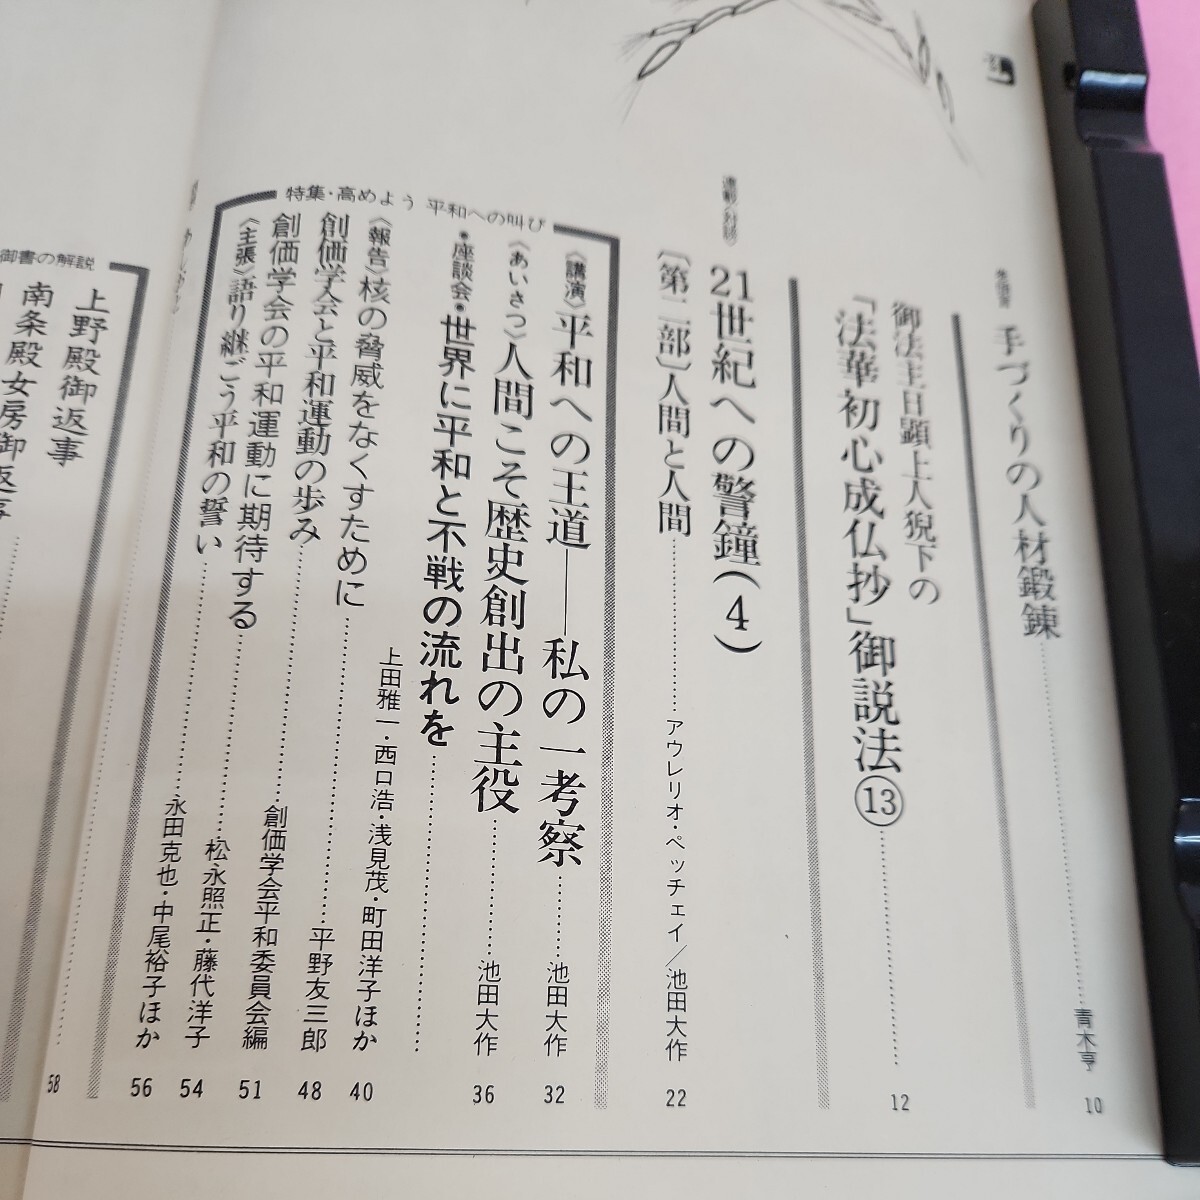 手づくりの人材鍛錬……青木亨 10
御法主日顕上人猊下の
「法華初心成仏抄」御説法⑬……12
連載／対談
21世紀への警鐘(4)
〔第二部〕人間と人間……アウレリオ・ペッチェイ／池田大作 22
特集・高めよう 平和への叫び
《講演》平和への王道——私の一考察……池田大作 32
《あいさつ》人間こそ歴史創出の主役……池田大作 36
・座談会・世界に平和と不戦の流れを……
上田雅一・西口浩・浅見茂・町田洋子ほか 40
《報告》核の脅威をなくすために……平野友三郎 48
創価学会と平和運動の歩み……創価学会平和委員会編 51
創価学会の平和運動に期待する……松永照正・藤代洋子 54
《主張》語り継ごう平和の誓い……永田克也・中尾裕子ほか 56
御書の解説
上野殿御返事……58
南条殿女房御返事……